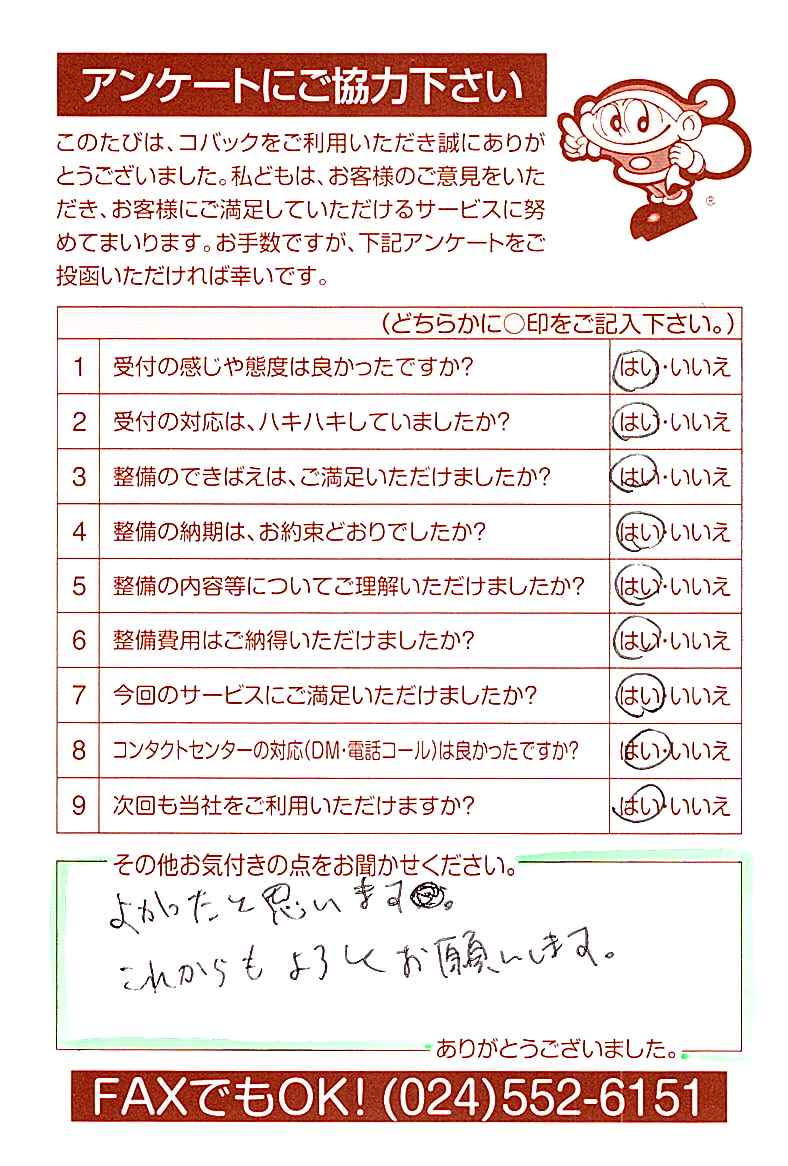 アンケートにご協力下さい
このたびは、コバックをご利用いただき誠にありが
とうございました。私どもは、お客様のご意見をいた
だき、お客様にご満足していただけるサービスに努
めてまいります。お手数ですが、下記アンケートをご
投函いただければ幸いです。
®
(どちらかに○印をご記入下さい。)
1 受付の感じや態度は良かったですか? はい・いいえ
2 受付の対応は、ハキハキしていましたか? はい・いいえ
3 整備のできばえは、ご満足いただけましたか? はい・いいえ
4 整備の納期は、お約束どおりでしたか? はい・いいえ
5 整備の内容等についてご理解いただけましたか? はい・いいえ
6 整備費用はご納得いただけましたか? はい・いいえ
7 今回のサービスにご満足いただけましたか? はい・いいえ
8 コンタクトセンターの対応(DM・電話コール)は良かったですか? はい・いいえ
9 次回も当社をご利用いただけますか? はい・いいえ
その他お気付きの点をお聞かせください。
よかったと思います。
これからもよろしくお願いします。
ありがとうございました。
FAXでもOK! (024)552-6151